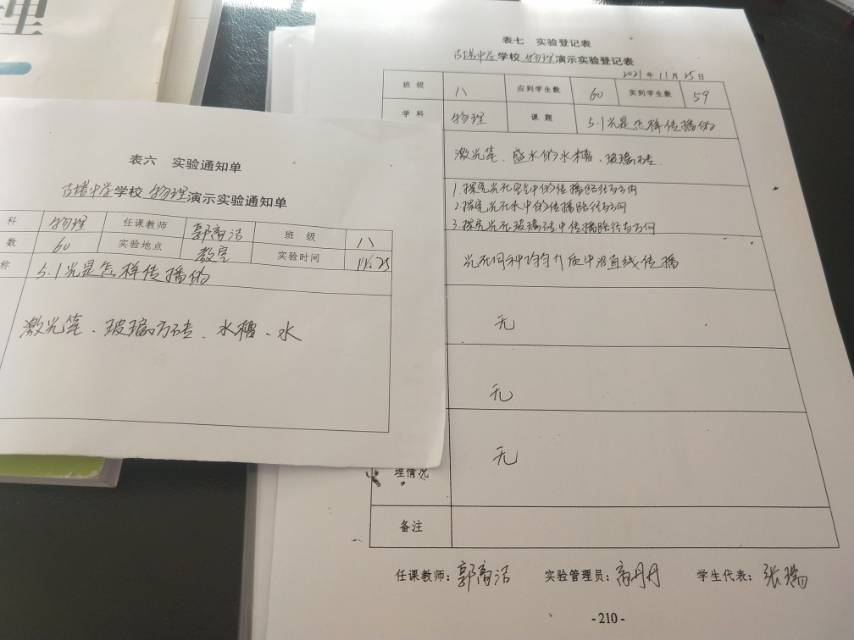 理
表六 实验通知单
古塔中学学校 物理演示实验通知单
科 物理 任课教师 郭高洁 班级 八
数 60 实验地点 教室 实验时间 11.25
称 5.1光是怎样传播的
激光笔、玻璃砖、水槽、水
表七 实验登记表
古塔中学学校 物理演示实验登记表
2021年11月25日
班级 八 应到学生数 60 实到学生数 59
学科 物理 课题 5.1光是怎样传播的
激光笔、盛水的水槽、玻璃砖
1.探究光在空气中的传播路径与方向
2.探究光在水中的传播路径与方向
3.探究光在玻璃砖中传播路径与方向
光在同种均匀介质中沿直线传播
无
无
无
理情况
备注
任课教师：郭高洁 实验管理员：高丹丹 学生代表：张瑞
-210-